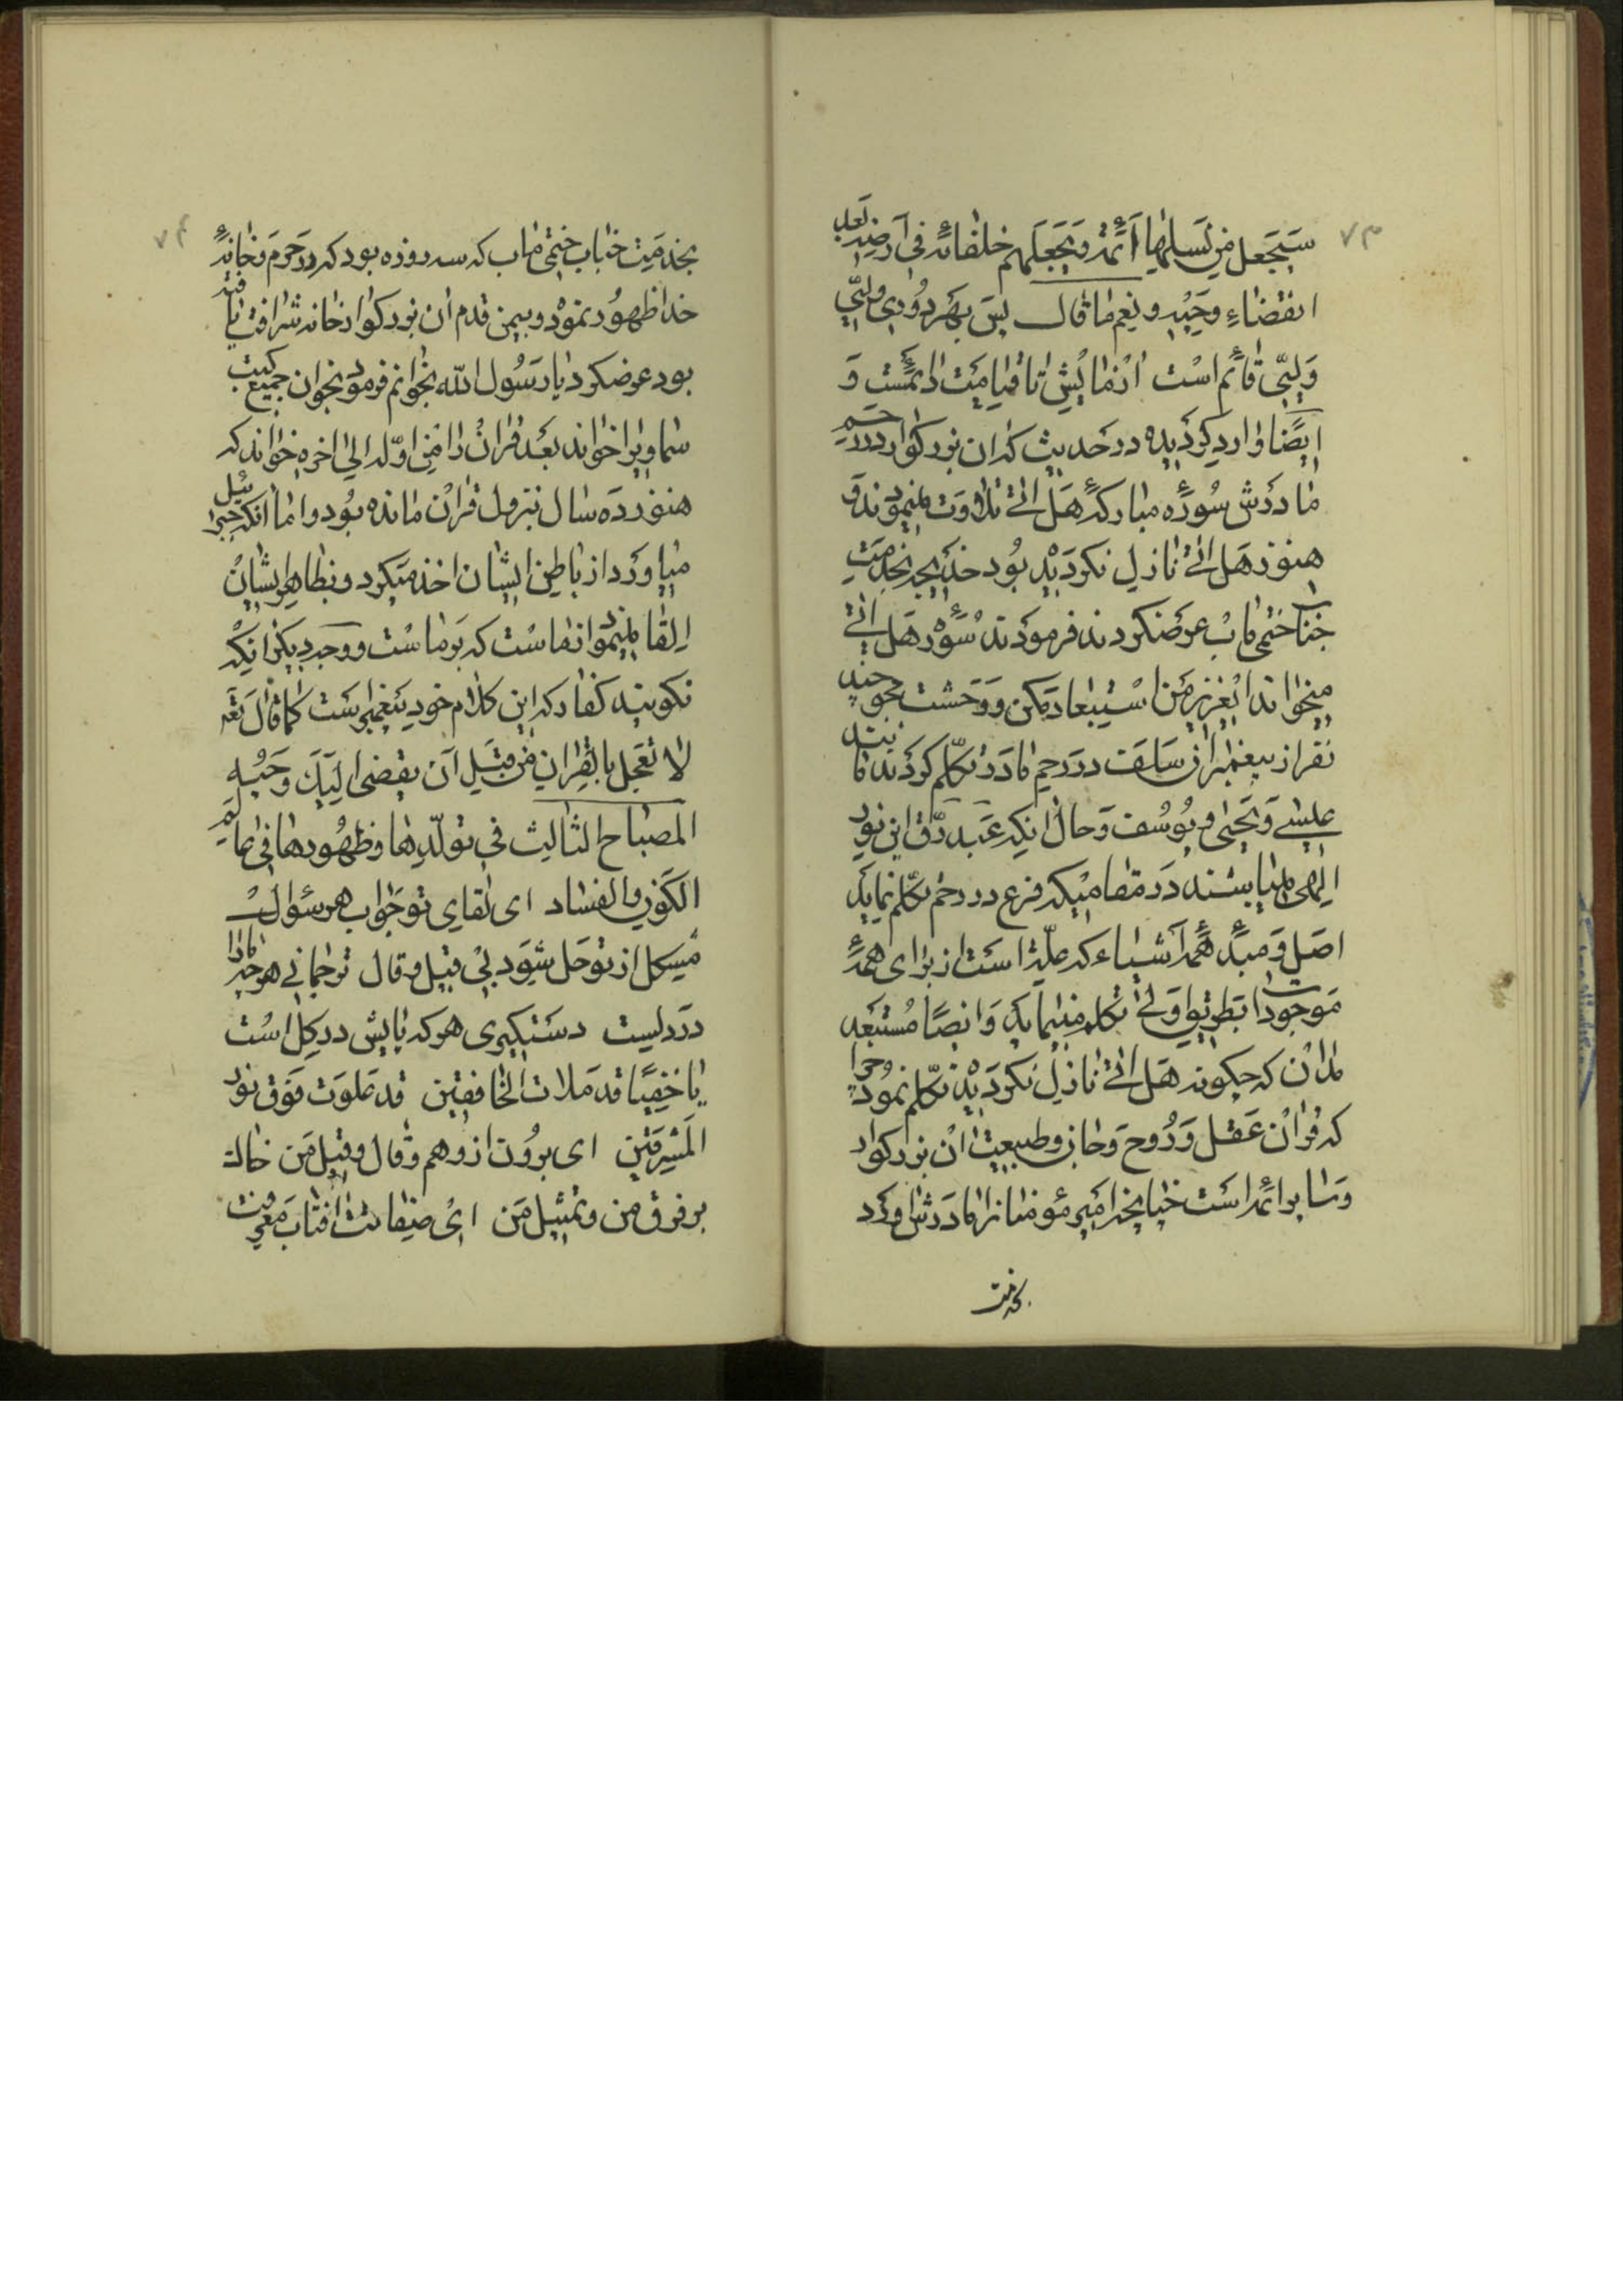 ۷۳
سَیَجعل مِن نَسلها اَئمّة وَیَجعَلهم خلفائه فی اَرضه بَعد
انقضاءِ وحَیِه و نِعم ما قال پسَ بَهر دوُری ولیّی
وَلیّی قائم است ازمایش تا قیامَت دائمست وَ
ایضًا وارد کردیده در حَدیث که ان بزرکوار در رحم
مادرَش سُورهٔ مبارکهٔ هَل اتی تلاوَت مینمودند وَ
هنوز هَل اتی نازل نکردَیده بُود خدَیجه بخدمَت
جناب ختمی ماب عرَضکردند فرمودَند سُورهٔ هَل اتی
میخواند ایعزیز مَن اسْتبعاد مَکن وَ وَحشت مجو چند
نفر از پیغمبران سَلَف در رَحم مادَر تکلّم کردَند مانند
عیسی وَ یَحیی و یُوسُف وَ حال انکه عَبد رقّ این نور
الهی میباشند دَر مقامیکه فرع در رحم تکلّم نماید
اصَل وَ مبدءِ همهٔ اَشیاء که علّة اسَت از برای همهٔ
مَوجودات بطریق اوَلی تکلم مینماید وَ ایضًا مُستبعَد
مدان که چکونه هَل اتی نازل نکردَیده تکلّم نموُد چرا
که قران عَقل وَ رُوح وَ جان و طبیعت ان بزرکوار
وَ سایر ائمه اسَت چنانچه امَیر مؤمنان از مادَرش اورد
بخدمت
۷۴
بخدمَت جناب ختمی ماب که سه روزه بود که در حَرم وَ خانهٔ
خدا ظهُور نموُد و بیمن قدم ان بزرکوار خانه شرافت یافته
بود عرضکرد یا رَسُول الله بخوانم فرمود بخوان جمیع کتب
سماویرا خواند بعَد قران را مِن اوّله الی اخره خواند که
هنوز دَه سَال بنزول قران مانده بوُد و اما انکه جبرائیل
میاورَد از باطن ایشان اخذ میَکرد و بظاهر ایشان
القا مینمود انفاست که بَر ماست و وَجه دیکر انکه
نکویند کفار که این کلام خود پیَغمبر است کما قال تعَ
لا تعَجل بالقران مِن قبَل اَن یقضی الیَک وَحیُه
المصباح الثالث فی تولّدِها و ظهُورها فی عالَم
الکَون و الفساد ای لقای تو جَواب هر سؤال
مُشکل از تو حَل شوَد بی قیل و قال ترجمانی هر چه ما را
در دَلیست دستَکیری هر که پایش در کِل است
یا خفیًا قد مَلات الخافقین قد عَلوَت فوَق نور
المَشرقَین ای بروُن از وهم وَ قال و قیل مَن خاک
بر فرق من و تمثیل مَن ایُ صفاتت افتاب مَعرفت